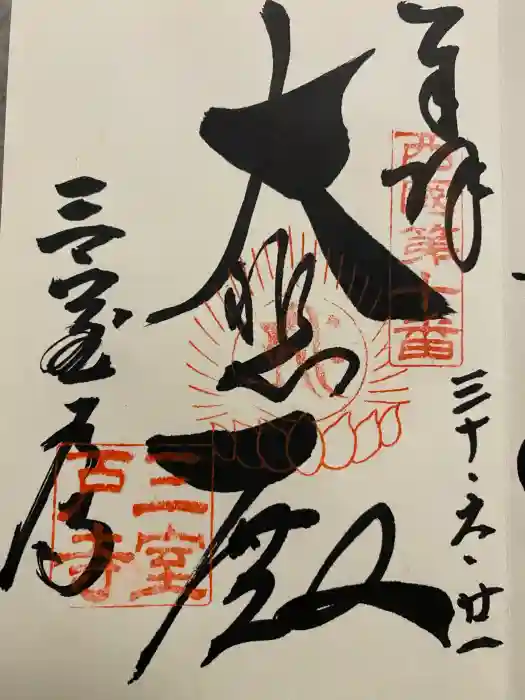 奉拝
西國第十番
三十・六・廿一
大悲殿
三室戸寺
三室
寺